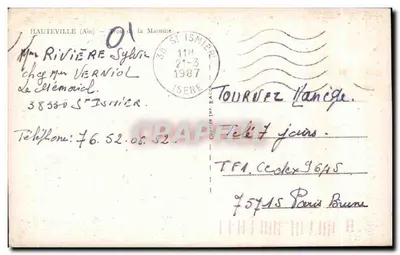 HAUTEVILLE (Ain) - de la Mansion
01
38 ST ISMIER
11H
21-3
1987
ISERE
Mme RIVIÈRE Sylvie
chez Mme VERNIOL
Le
38330 St Ismier
Téléphone: 76.52.05.52.
TOURNEZ Manège.
Télé 7 jours.
TF1 Cedex 9645
75715 Paris Brune